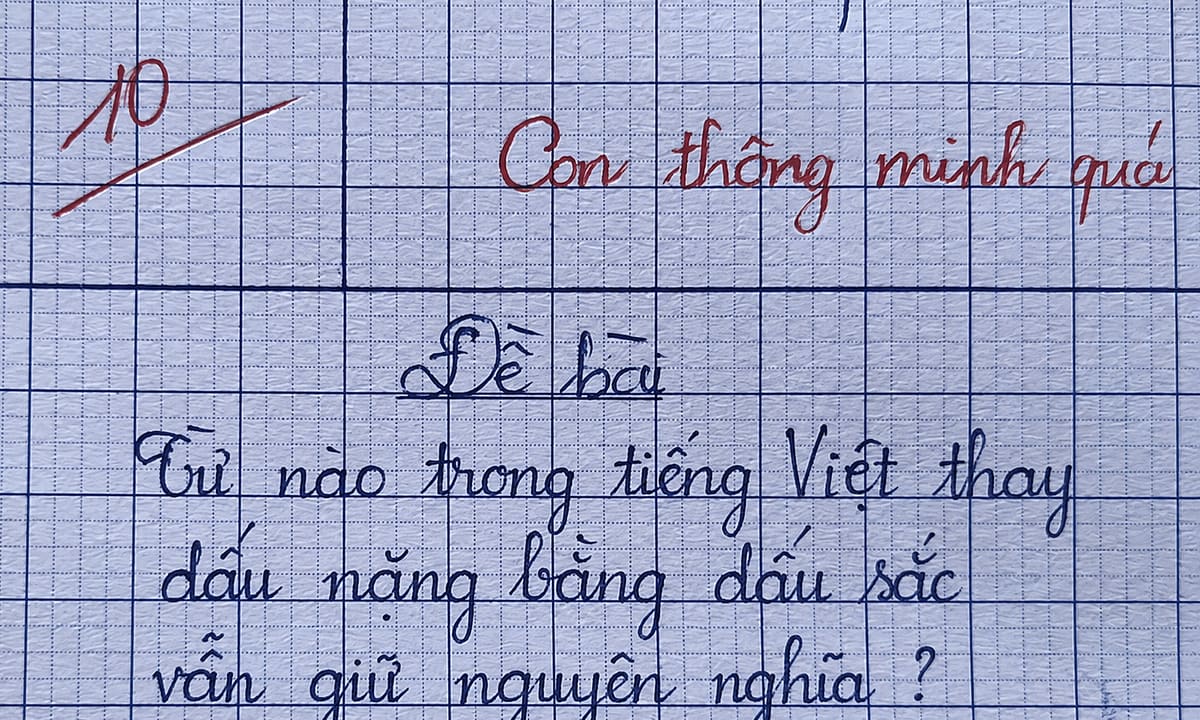 10
Con thông minh quá
Đề bài
Từ nào trong tiếng Việt thay
dấu nặng bằng dấu sắc
vẫn giữ nguyên nghĩa ?